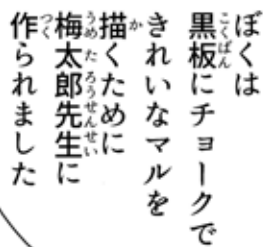 ぼくは
黒板にチョークで
きれいなマルを
描くために
梅太郎先生に
作られました